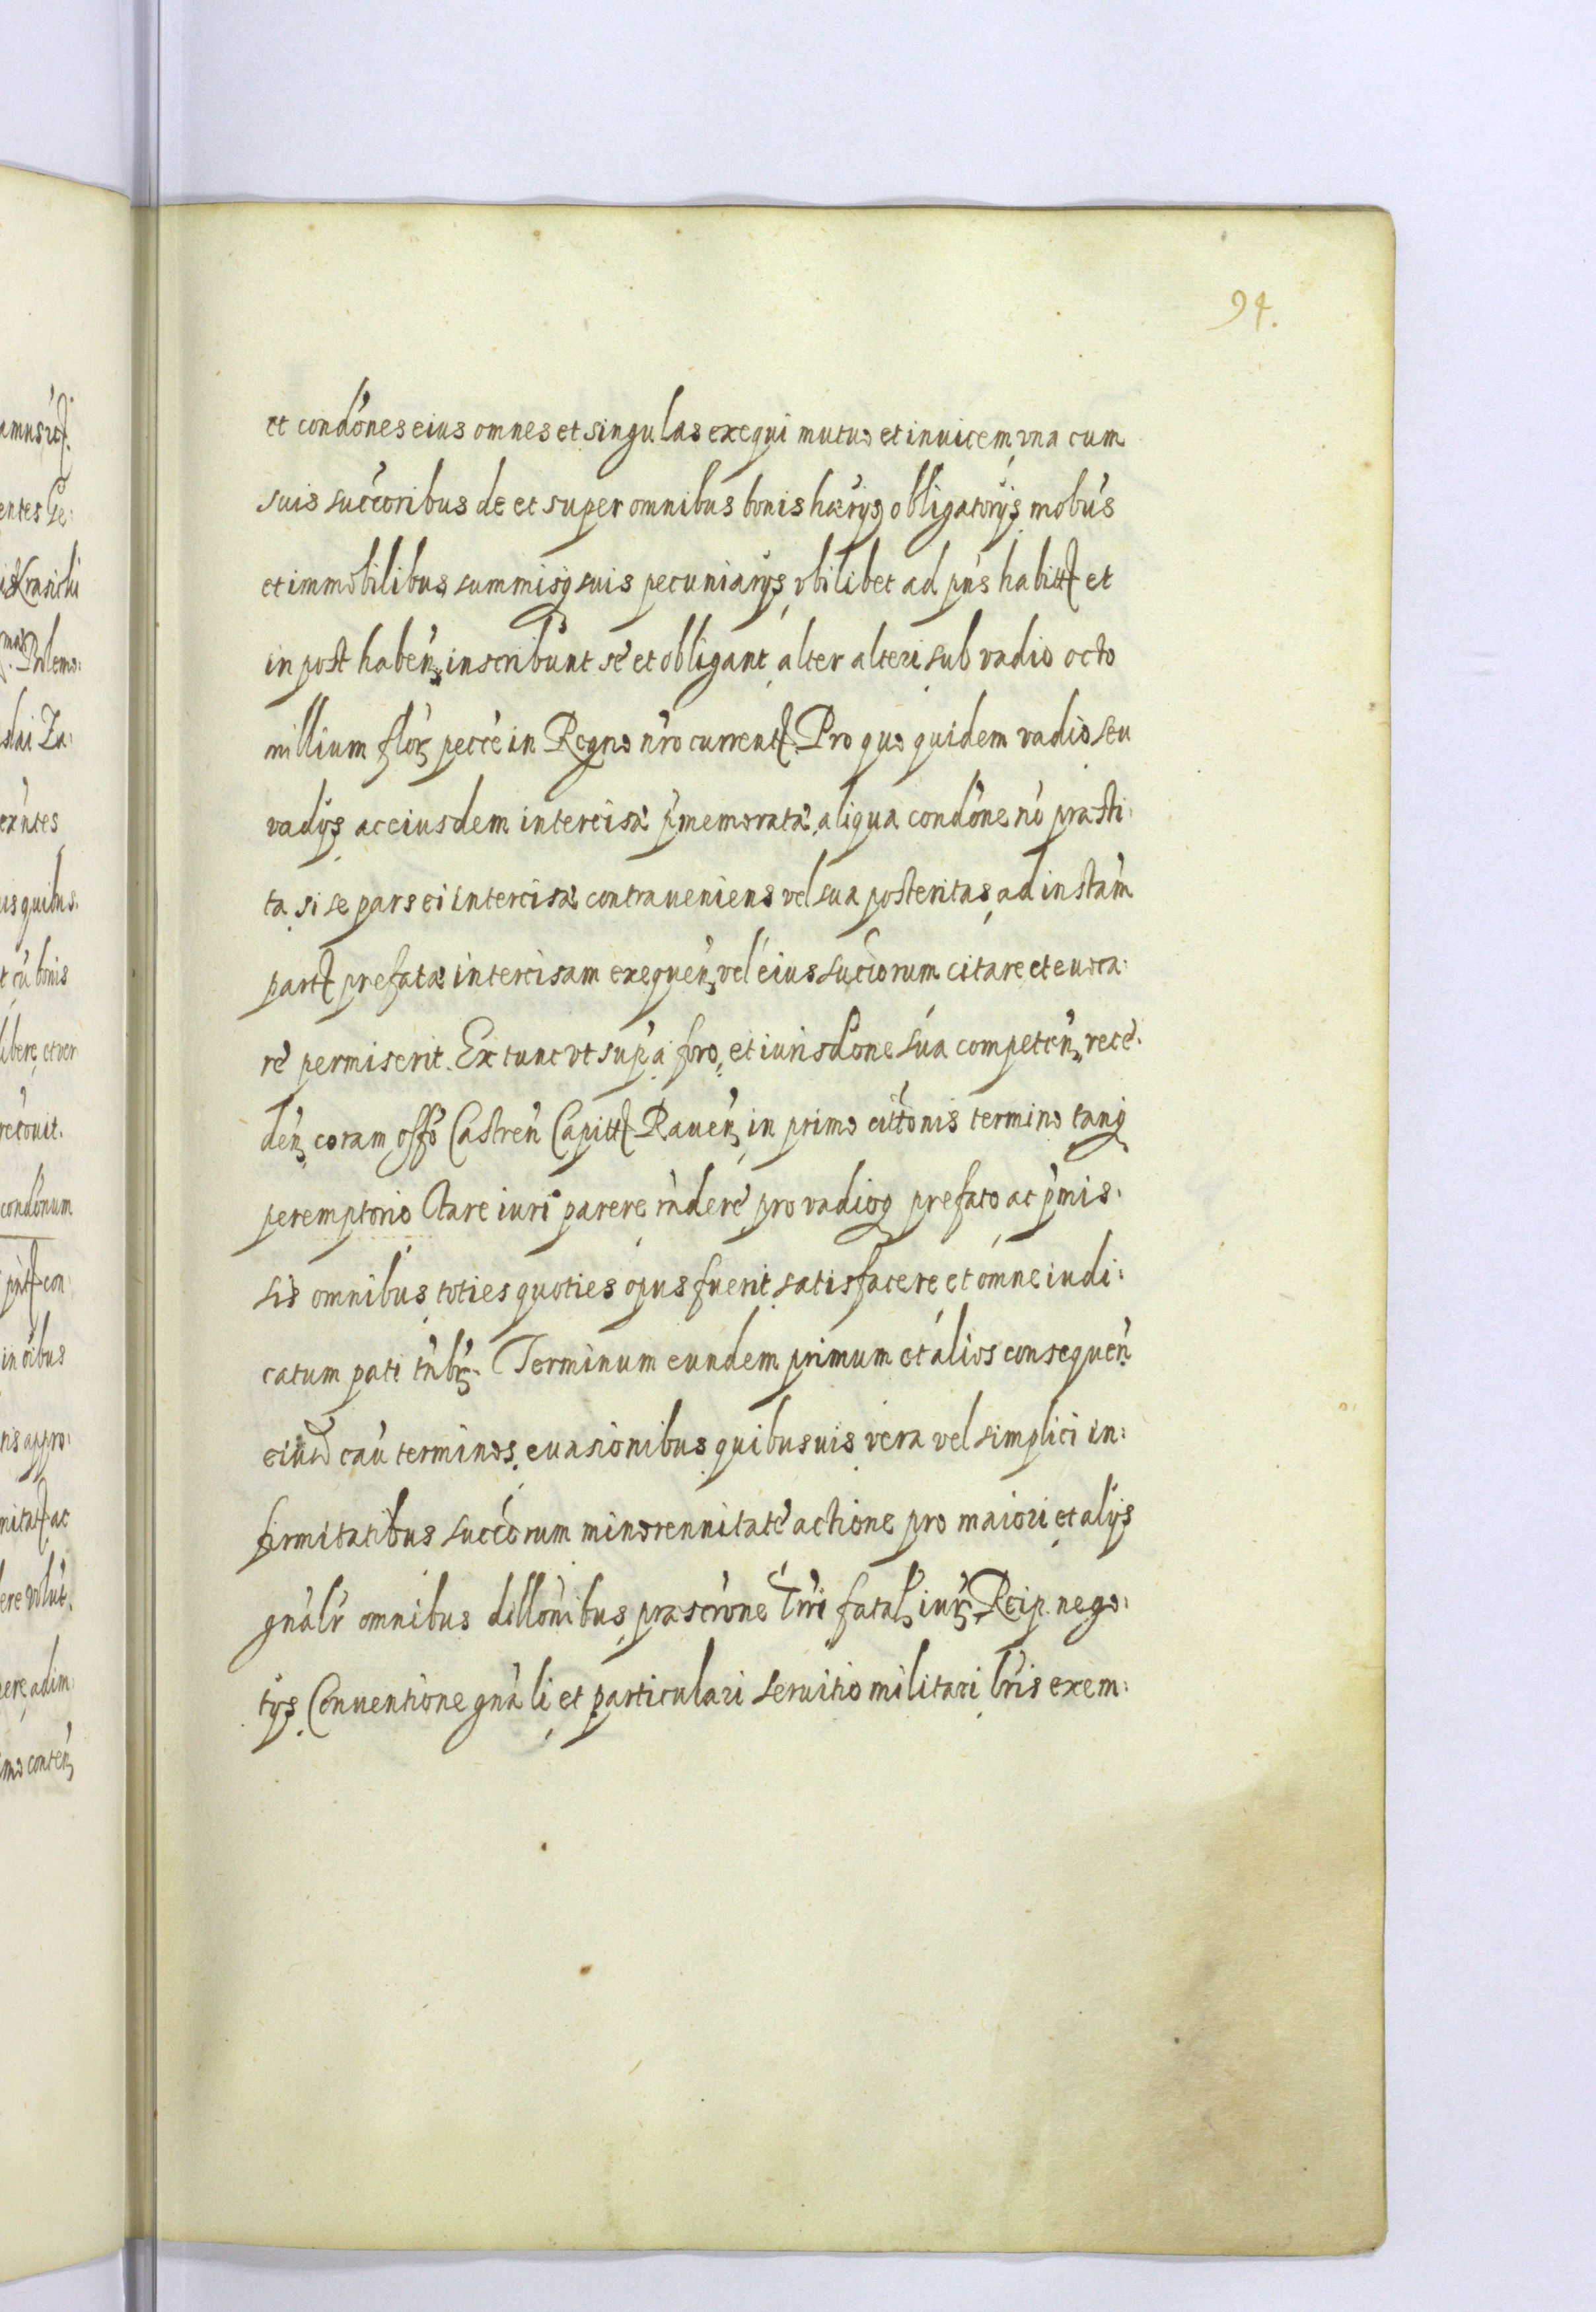 94.
et condónes eius omnes et singulas exequi mutuo et inuicem, vna cum
suis succoribus de et super omnibus bonis hærijs obligatorijs mobús
et immobilibus, summisq suis pecuniarijs, vbilibet ad pn̄s habitt et
in post habeń, inscribunt se et obligant, alter alteri sub vadio octo
millium flor pecce in Regno nr̄o current. Pro quo quidem vadio seu
vadijs ac eiusdem intercisæ p̄memoratæ, aliqua condóne nó præsti:
ta, si se pars ei intercisæ contraueniens vel sua posteritas, ad instam̄
part prefatæ intercisam exequeń, vel eius succorum citare et euoca:
re permiserit. Ex tunc vt supa a foro, et iurisdóne sua competeń, rece:
deń, coram offó Castreń Capitt Raueń, in primo cittonis termino tanq
peremptorio stare iuri parere rńdere pro vadioq prefato ac p̄mis:
sis omnibus, toties quoties opus fuerit, satisfacere et omne iudi:
catum pati tńbr. Terminum eundem primum et alios consequeń
eiusd cau terminos, euasionibus quibusuis, vera vel simplici in:
firmitatibus succorum minorennitate actione pro maiori, et alijs
gnálr omnibus dillónibus, præscróne Trŕi fatal iur Reip. nego:
tijs, Conuentione gnáli, et particulari seruitio militari, lr̄is exem:
amus
entes Ge:
Krasicki
slai Za:
exńtes
uis quibus
t cū bonis
libere, et ver
recouit.
condónum
con
in oibus
ris appro:
nitat ac
ere volút.
ere, adim:
imo conteń